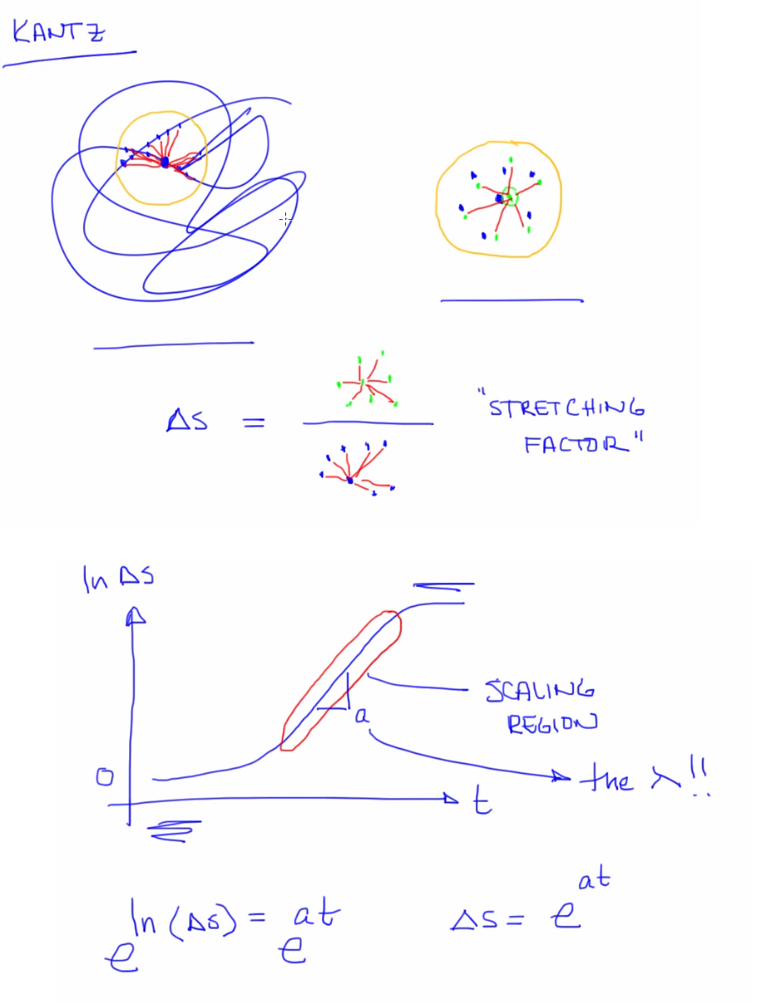 KANTZ
ΔS =
"STRETCHING
FACTOR"
ln ΔS
SCALING
REGION
a
0
the λ!!
t
e^ln(ΔS) = e^at
ΔS = e^at